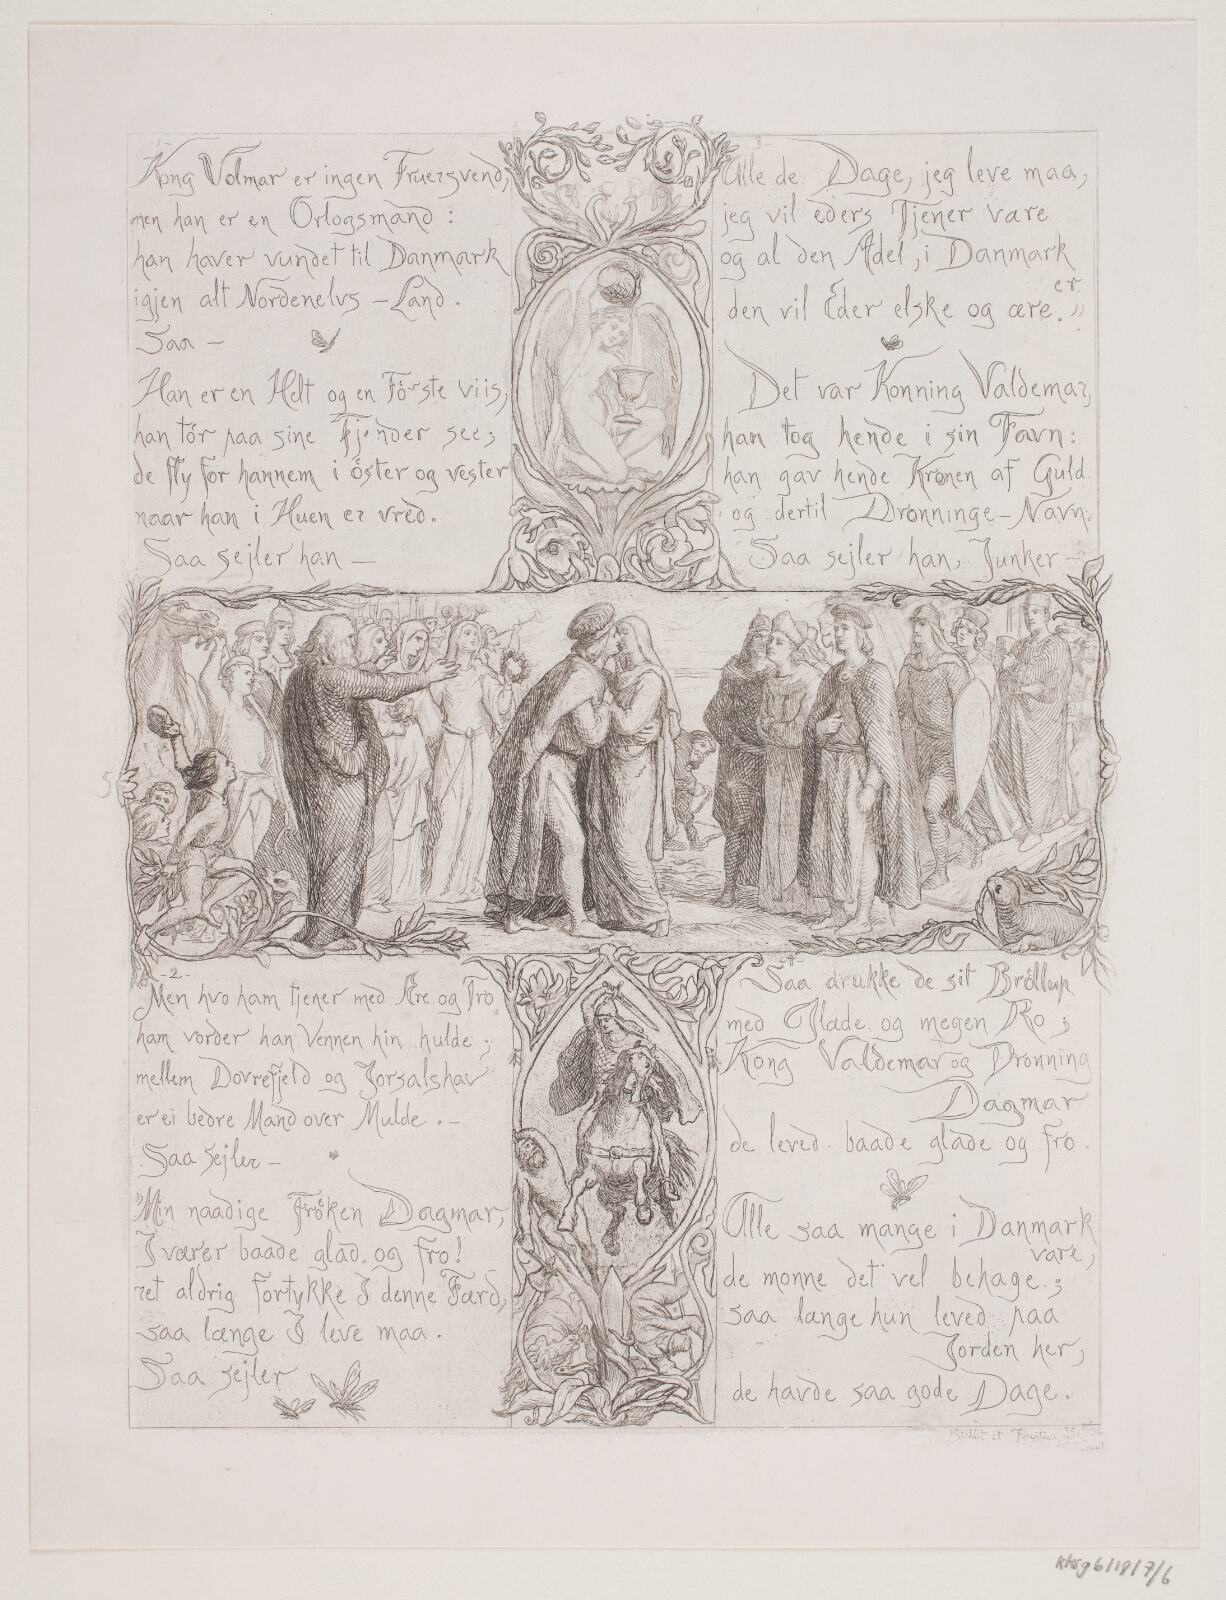 -1-
Kong Volmar er ingen Fruersvend,
men han er en Orlogsmand :
han haver vundet til Danmark
igjen alt Nordenelvs – Land .
Saa –
Han er en Helt og en Förste viis,
han tör paa sine Fjender see;
de fly for hannem i öster og vester
naar han i Huen er vred.
Saa sejler han –
-2-
Men hvo ham tjener med Ære og Tro
ham vorder han Vennen hin hulde ;
mellem Dovrefjeld og Jorsalshav
er ei bedre Mand over Mulde . –
Saa sejler –
"Min naadige Fröken Dagmar,
I værer baade glad. og fro!
ret aldrig fortykke I denne Færd,
saa længe I leve maa .
Saa sejler
3-
Alle de Dage, jeg leve maa,
jeg vil eders Tjener være
og al den Adel, i Danmark er
den vil Eder elske og ære."
Det var Konning Valdemar,
han tog hende i sin Favn:
han gav hende Kronen af Guld
og dertil Dronninge-Navn.
Saa sejler han, Junker –
-4-
Saa drukke de sit Bröllup
med Glæde og megen Ro ;
Kong Valdemar og Dronning
Dagmar
de leved baade glade og fro .
Alle saa mange i Danmark
vare,
de monne det vel behage ;
saa længe hun leved paa
Jorden her,
de havde saa gode Dage .
5
kksg6/19/7/6